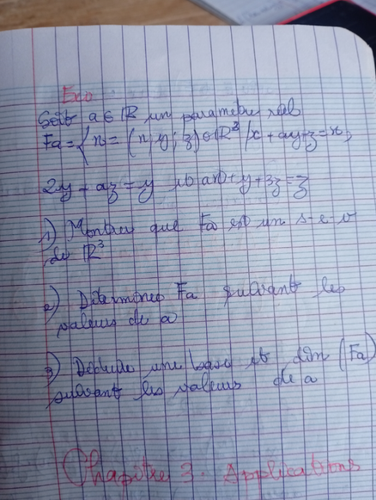 Exo
Soit a ∈ ℝ un paramètre réel
Fa = { x = (x, y, z) ∈ ℝ³ / x + ay + z = x,
2y + az = y et ax + y + 3z = z
1) Montrer que Fa est un s-e-v
de ℝ³
2) Déterminer Fa suivant les
valeurs de a
3) Déduire une base et dim (Fa)
suivant les valeurs de a
Chapitre 3 : Applications